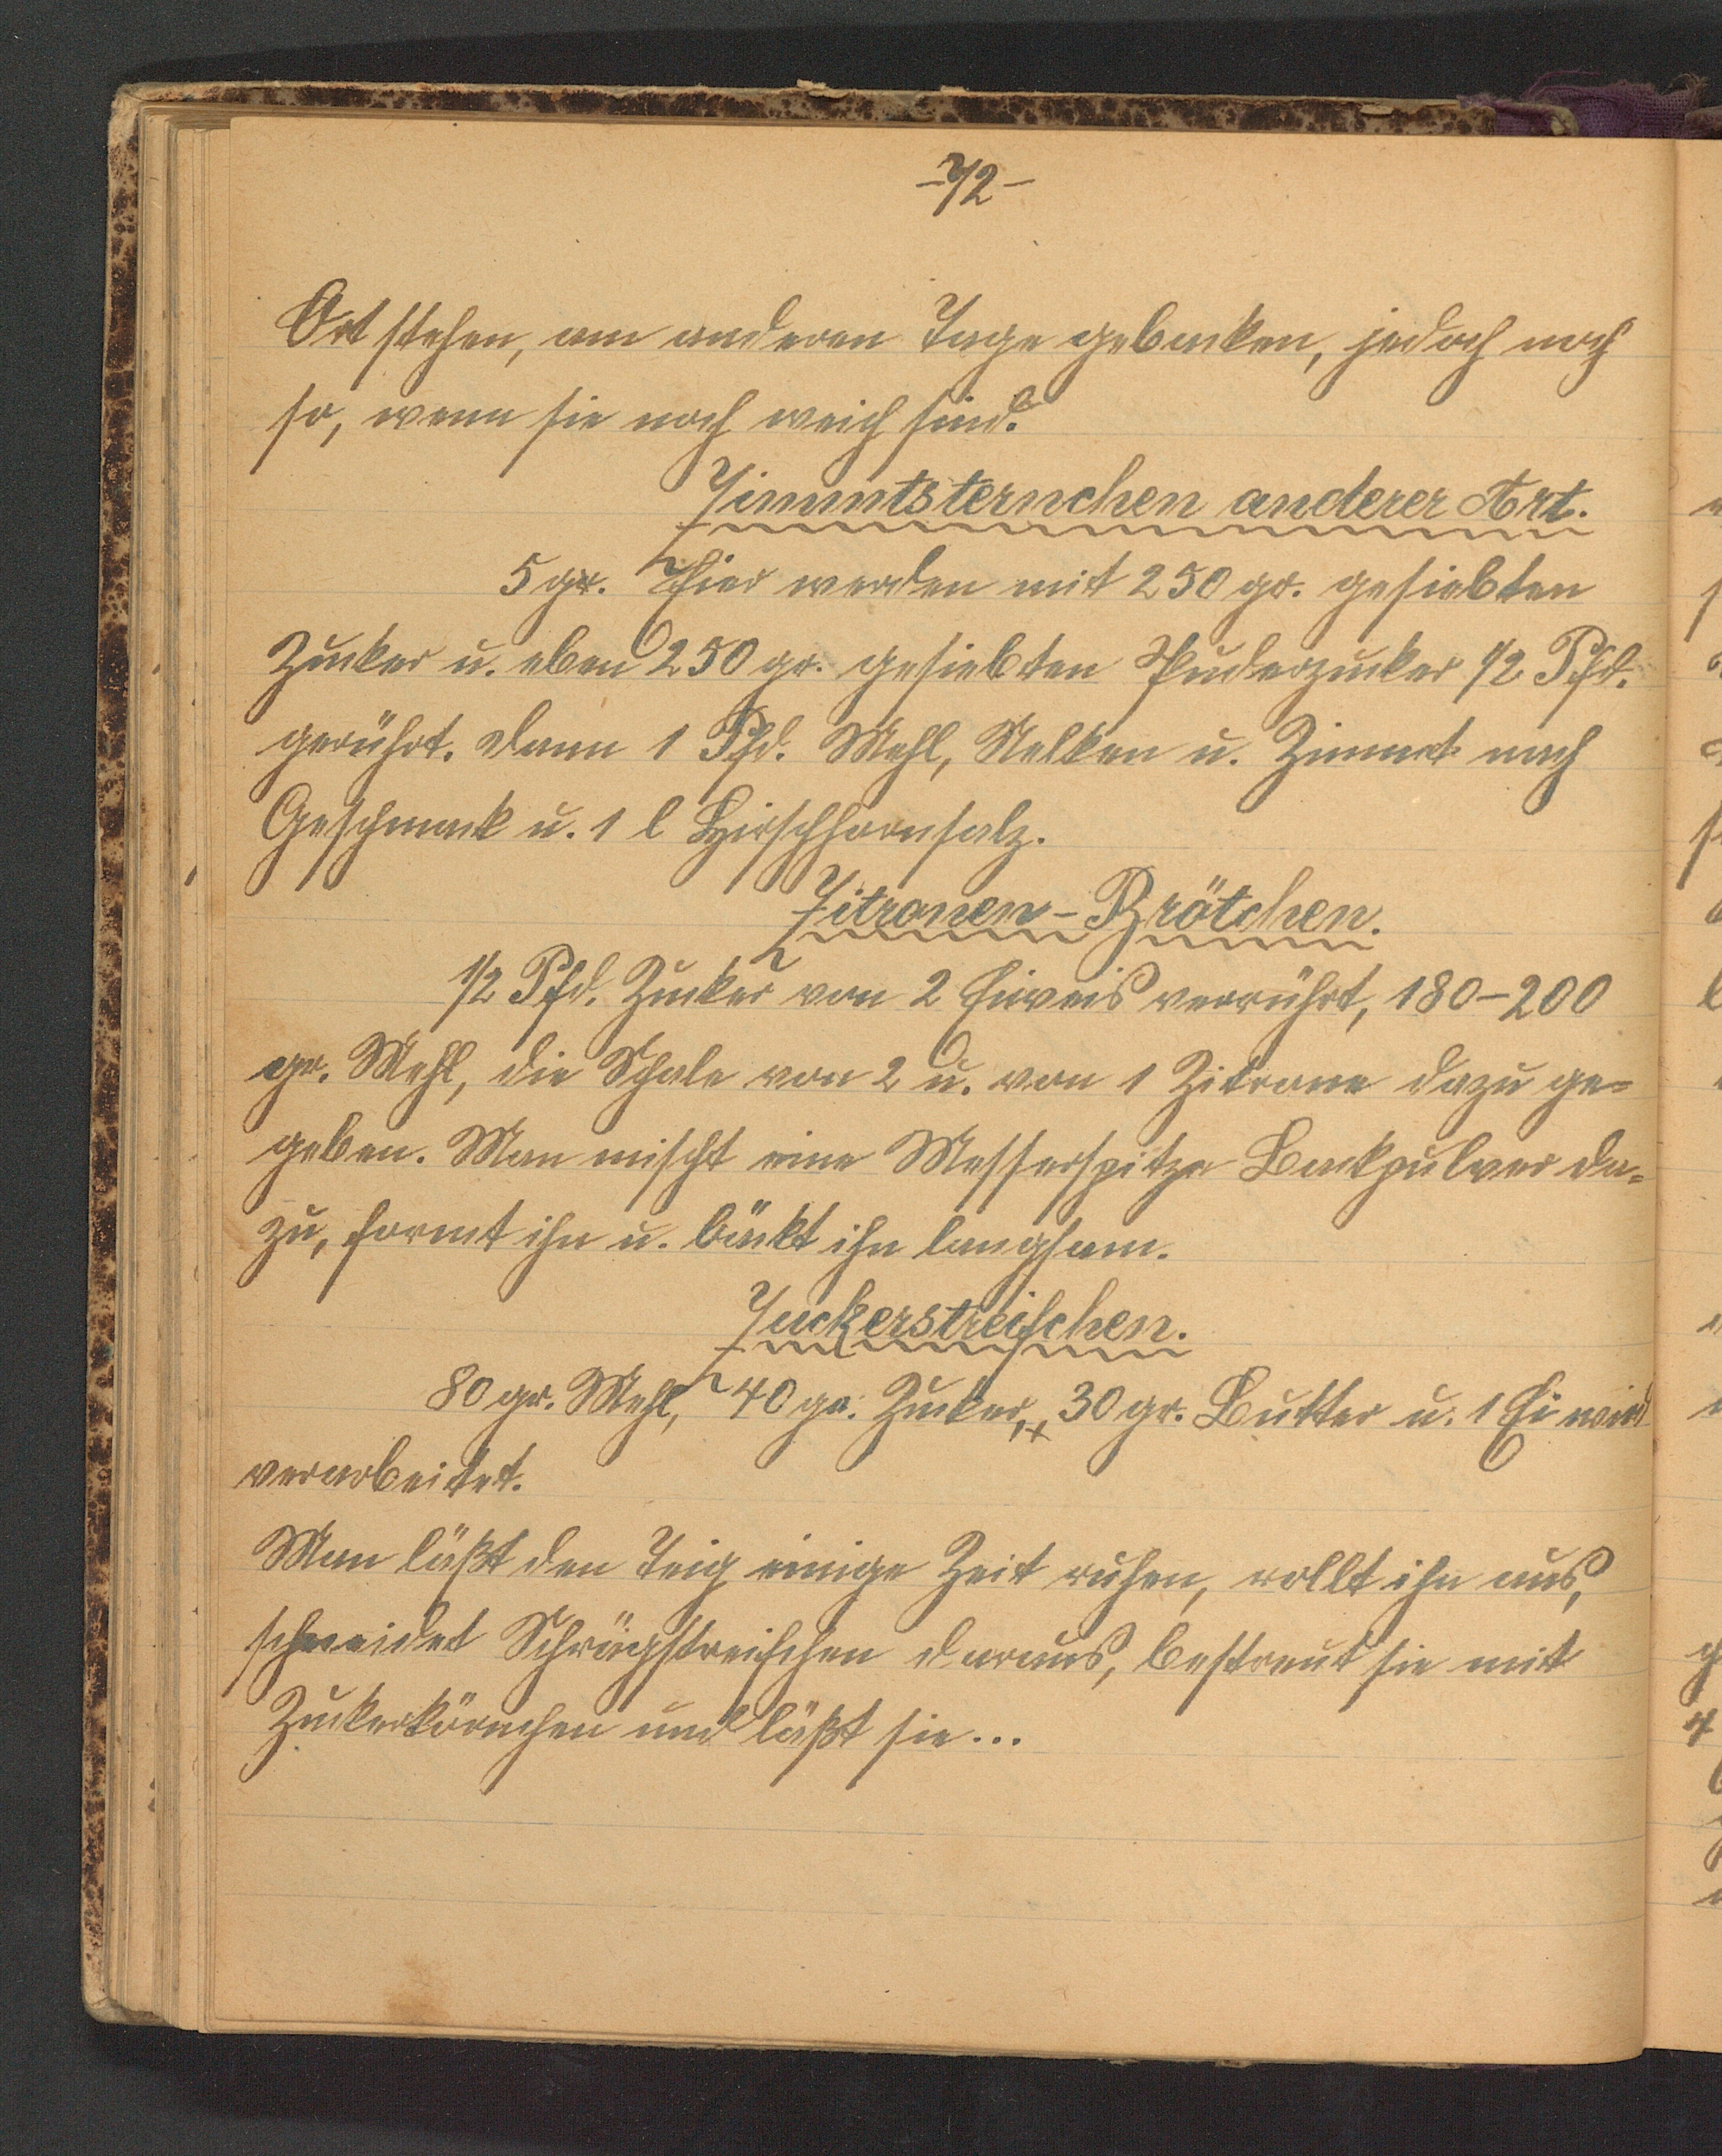 -72-
Ort stehen, am anderen Tage gebacken, jedoch noch
so, wenn sie noch weich sind.
Zimmtsternchen anderer Art.
5 gr. Eier werden mit 250 gr. gesiebten
Zucker u. eben 250 gr. gesiebten Puderzucker 1/2 Pfd.
gerührt. dann 1 Pfd. Mehl, Nelken u. Zimmt nach
Geschmack u. 1 l Hirschhornsalz.
Zitronen-Brötchen.
1/2 Pfd. Zucker von 2 Eiweis verrührt, 180-200
gr. Mehl, die Schale von 2 u. von 1 Zitrone dazu ge=
geben. Man mischt eine Messerspitze Backpulver da=
zu, formt ihn u. bäckt ihn langsam.
Zuckerstreifchen.
80 gr. Mehl, 40 gr. Zucker, + 30 gr. Butter u. 1 Ei wird
verarbeitet.
Man läßt den Teig einige Zeit ruhen, rollt ihn aus,
schneidet Schrägstreifchen daraus, bestreut sie mit
Zuckerkörnchen und läßt sie...